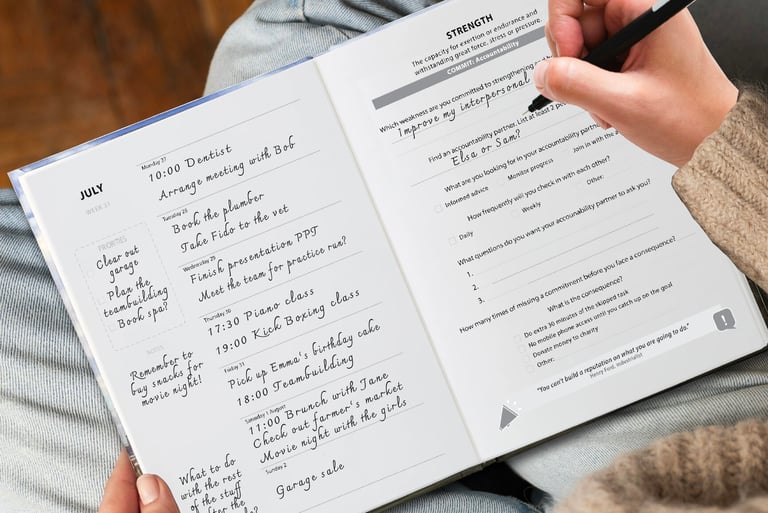 JULY
WEEK 31
PRIORITIES
Clear out
garage
Plan the
teambuilding
Book spa?
NOTES
Remember to
buy snacks for
movie night!
What to do
with the rest
of the stuff
after the
Monday 27
10:00 Dentist
Arrange meeting with Bob
Tuesday 28
Book the plumber
Take Fido to the vet
Wednesday 29
Finish presentation PPT
Meet the team for practice run?
Thursday 30
17:30 Piano class
19:00 Kick Boxing class
Friday 31
Pick up Emma's birthday cake
18:00 Teambuilding
Saturday 1 August
11:00 Brunch with Jane
Check out farmer's market
Movie night with the girls
Sunday 2
Garage sale
STRENGTH
The capacity for exertion or endurance and
withstanding great force, stress or pressure.
COMMIT: Accountability
Which weakness are you committed to strengthening
Improve my interpersonal
Find an accountability partner. List at least 2
Elsa or Sam?
What are you looking for in your accountability partner
Informed advice Monitor progress Join in with the
How frequently will you check in with each other?
Daily Weekly Other:
What questions do you want your accountability partner to ask you?
1.
2.
3.
How many times of missing a commitment before you face a consequence?
What is the consequence?
Do extra 30 minutes of the skipped task
No mobile phone access until you catch up on the goal
Donate money to charity
Other:
"You can't build a reputation on what you are going to do."
Henry Ford, Industrialist
!